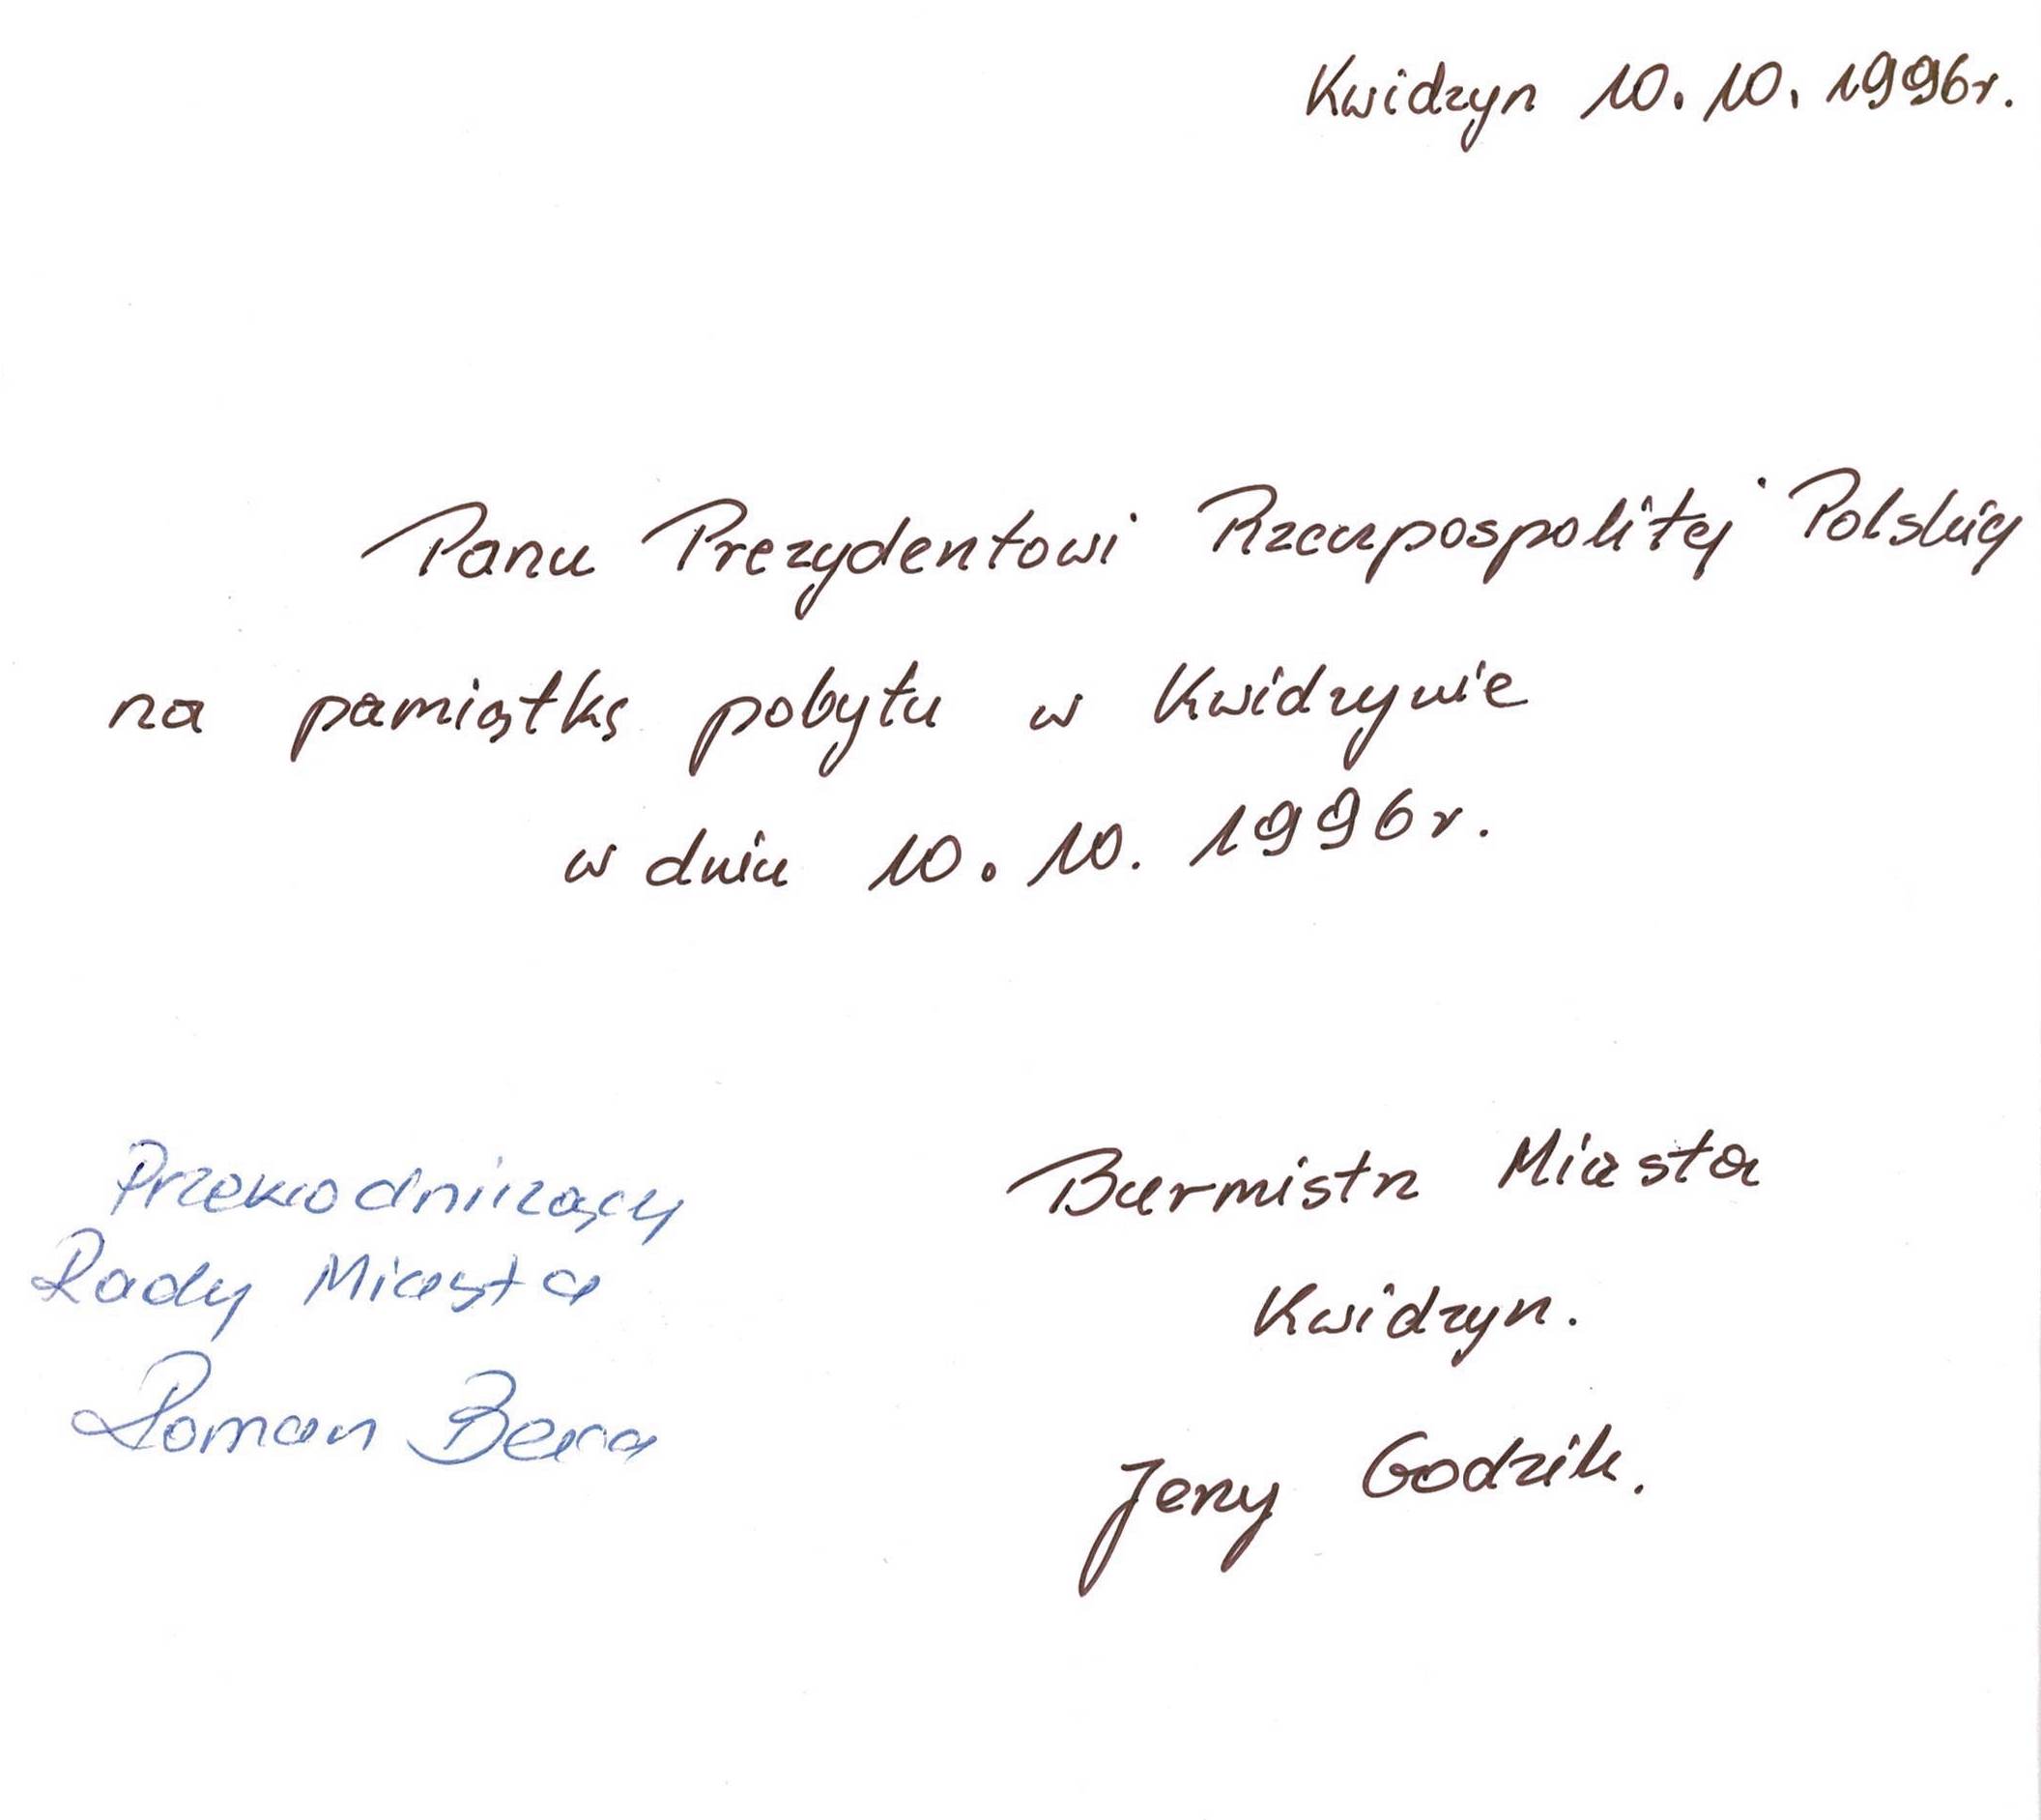 Kwidzyn 10.10.1996r.
Panu Prezydentowi Rzeczpospolitej Polskiej
na pamiątkę pobytu w Kwidzynie
w dniu 10.10.1996r.
Przewodniczący
Rady Miasta
Roman Bera
Burmistrz Miasta
Kwidzyn.
Jerzy Godzik.